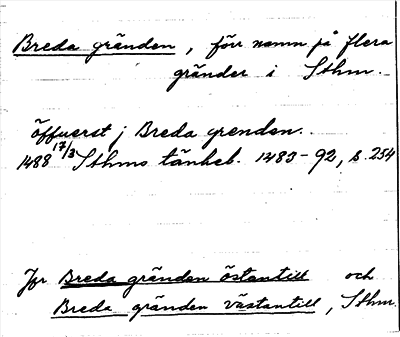 Breda gränden, förr namn på flera
gränder i Sthm.
öffuerst j Breda grenden.
1488 17/3 Sthms tänkeb. 1483-92, s. 254
Jfr Breda gränden östantill och
Breda gränden västantill, Sthm.